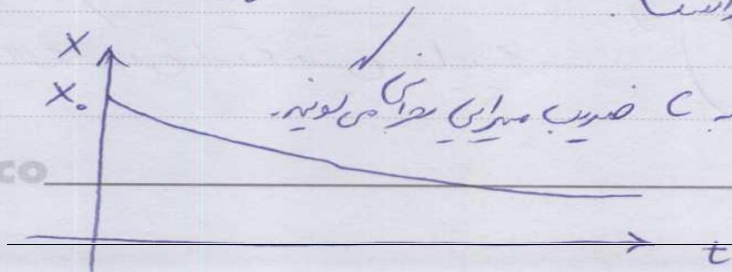 است.
X
X₀
به C ضریب میرایی بحرانی می گویند.
co
t